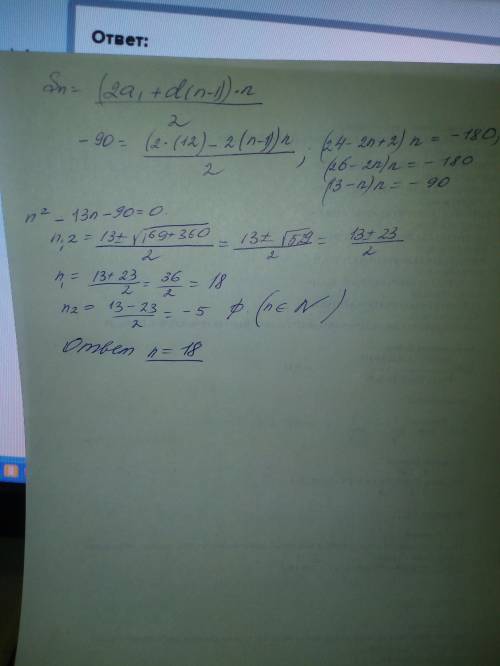 Ответ:
Sn = (2a₁ + d(n-1))·n / 2
-90 = (2·(12) - 2(n-1))n / 2 ; (24 - 2n + 2) n = -180,
(26 - 2n)n = -180
(13 - n)n = -90
n² - 13n - 90 = 0.
n₁,₂ = 13 ± √169+360 / 2 = 13 ± √529 / 2 = 13 ± 23 / 2
n₁ = 13+23 / 2 = 36 / 2 = 18
n₂ = 13-23 / 2 = -5 ∅ (n ∈ N)
Ответ n = 18